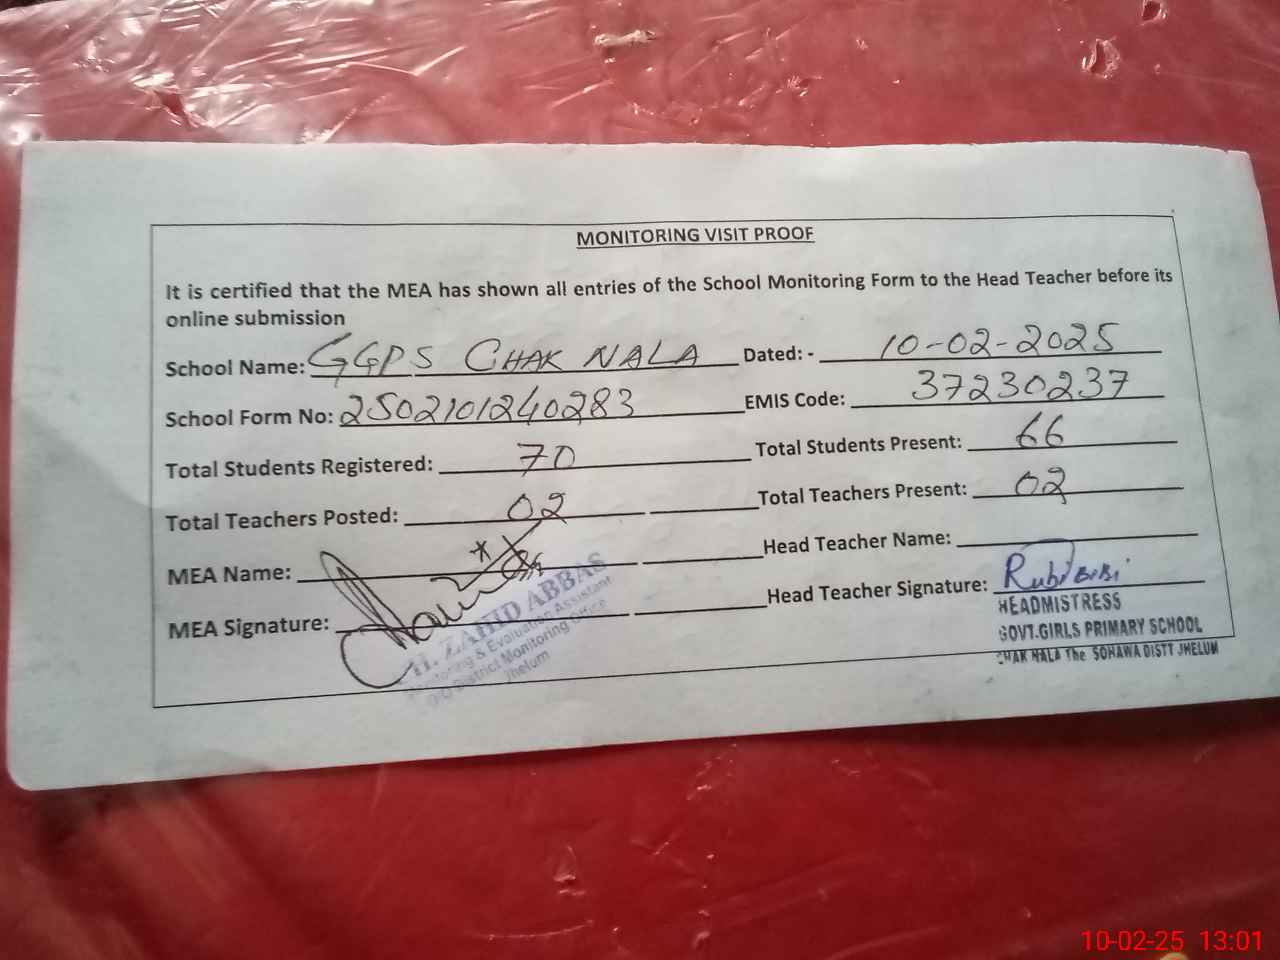 MONITORING VISIT PROOF
It is certified that the MEA has shown all entries of the School Monitoring Form to the Head Teacher before its
online submission
School Name: GGPS CHAK NALA Dated: - 10-02-2025
School Form No: 2502101240283 EMIS Code: 37230237
Total Students Registered: 70 Total Students Present: 66
Total Teachers Posted: 02 Total Teachers Present: 02
MEA Name: Head Teacher Name:
MEA Signature: Head Teacher Signature: Rubi BiBi
ZAHID ABBAS
& Evaluation Assistant
District Monitoring Office
Jhelum
HEADMISTRESS
GOVT.GIRLS PRIMARY SCHOOL
CHAK NALA The SOHAWA DISTT JHELUM
10-02-25 13:01